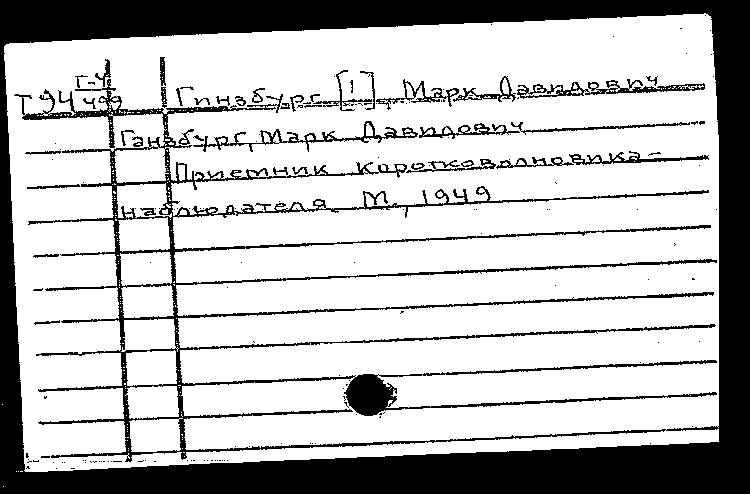 Т94 Г-4/499 Гинзбург [!], Марк Давидович
Ганзбург, Марк Давидович
Приемник коротковолновика-
наблюдателя. М., 1949